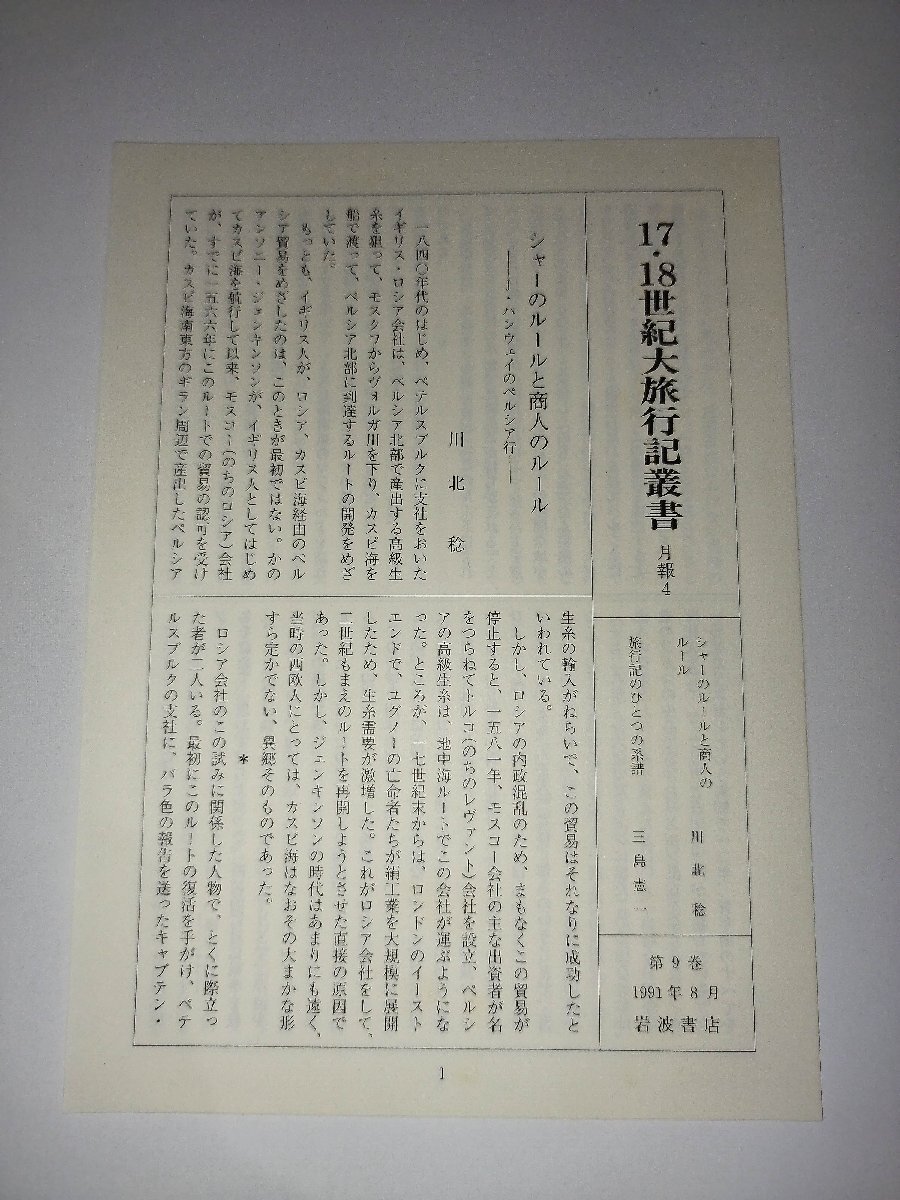 17・18世紀大旅行記叢書 月報4
シャーのルールと商人の
ルール 川北稔
旅行記のひとつの系譜 三島憲一
第9巻
1991年8月
岩波書店
シャーのルールと商人のルール
――J・ハンウェイのペルシア行――
川北稔
一八四〇年代のはじめ、ペテルスブルクに支社をおいた
イギリス・ロシア会社は、ペルシア北部で産出する高級生
糸を狙って、モスクワからヴォルガ川を下り、カスピ海を
船で渡って、ペルシア北部に到達するルートの開発をめざ
していた。
もっとも、イギリス人が、ロシア、カスピ海経由のペル
シア貿易をめざしたのは、このときが最初ではない。かの
アンソニー・ジェンキンソンが、イギリス人としてはじめ
てカスピ海を航行して以来、モスコー(のちのロシア)会社
が、すでに一五六六年にこのルートでの貿易の認可を受け
ていた。カスピ海南東方のギラン周辺で産出したペルシア
生糸の輸入がねらいで、この貿易はそれなりに成功したと
いわれている。
しかし、ロシアの内政混乱のため、まもなくこの貿易が
停止すると、一五八一年、モスコー会社の主な出資者が名
をつらねてトルコ(のちのレヴァント)会社を設立、ペルシ
アの高級生糸は、地中海ルートでこの会社が運ぶようにな
った。ところが、一七世紀末からは、ロンドンのイースト
エンドで、ユグノーの亡命者たちが絹工業を大規模に展開
したため、生糸需要が激増した。これがロシア会社をして、
二世紀もまえのルートを再開しようとさせた直接の原因で
あった。しかし、ジェンキンソンの時代はあまりにも遠く、
当時の西欧人にとっては、カスピ海はなおその大まかな形
すら定かでない、異郷そのものであった。
*
ロシア会社のこの試みに関係した人物で、とくに際立っ
た者が二人いる。最初にこのルートの復活を手がけ、ペテ
ルスブルクの支社に、バラ色の報告を送ったキャプテン・
1